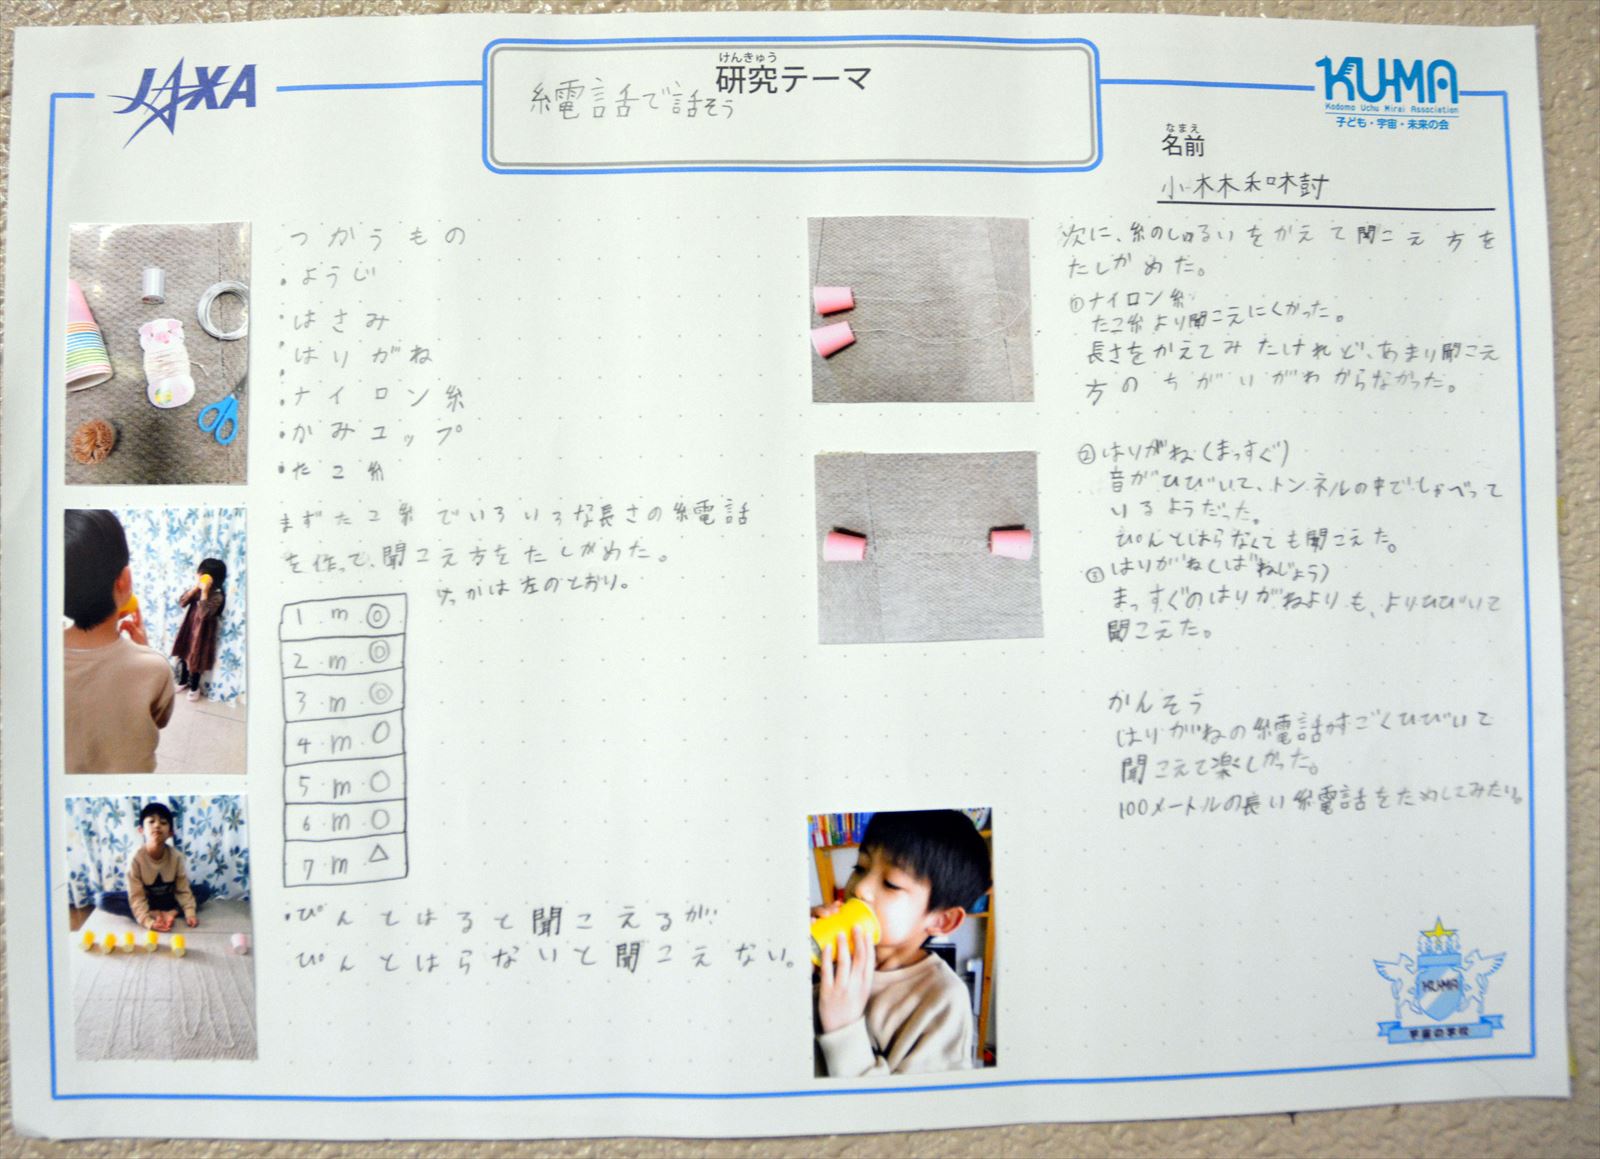 JAXA
けんきゅう
研究テーマ
糸電話で話そう
KU-MA
Kodomo Uchu Mirai Association
子ども・宇宙・未来の会
なまえ
名前
小林和樹
つかうもの
・ようじ
・はさみ
・はりがね
・ナイロン糸
・かみコップ
・たこ糸
まずたこ糸でいろいろな長さの糸電話
を作って、聞こえ方をたしかめた。
けっかは左のとおり。
1m ◎
2m ◎
3m ◎
4m ○
5m ○
6m ○
7m △
・ぴんとはると聞こえるが
ぴんとはらないと聞こえない。
次に、糸のしゅるいをかえて聞こえ方を
たしかめた。
①ナイロン糸
たこ糸より聞こえにくかった。
長さをかえてみたけれど、あまり聞こえ
方のちがいがわからなかった。
②はりがね(まっすぐ)
音がひびいて、トンネルの中でしゃべって
いるようだった。
ぴんとはらなくても聞こえた。
③はりがね(ばねじょう)
まっすぐのはりがねよりも、よりひびいて
聞こえた。
かんそう
はりがねの糸電話がすごくひびいて
聞こえて楽しかった。
100メートルの長い糸電話をためしてみたい。
KU-MA
宇宙の学校